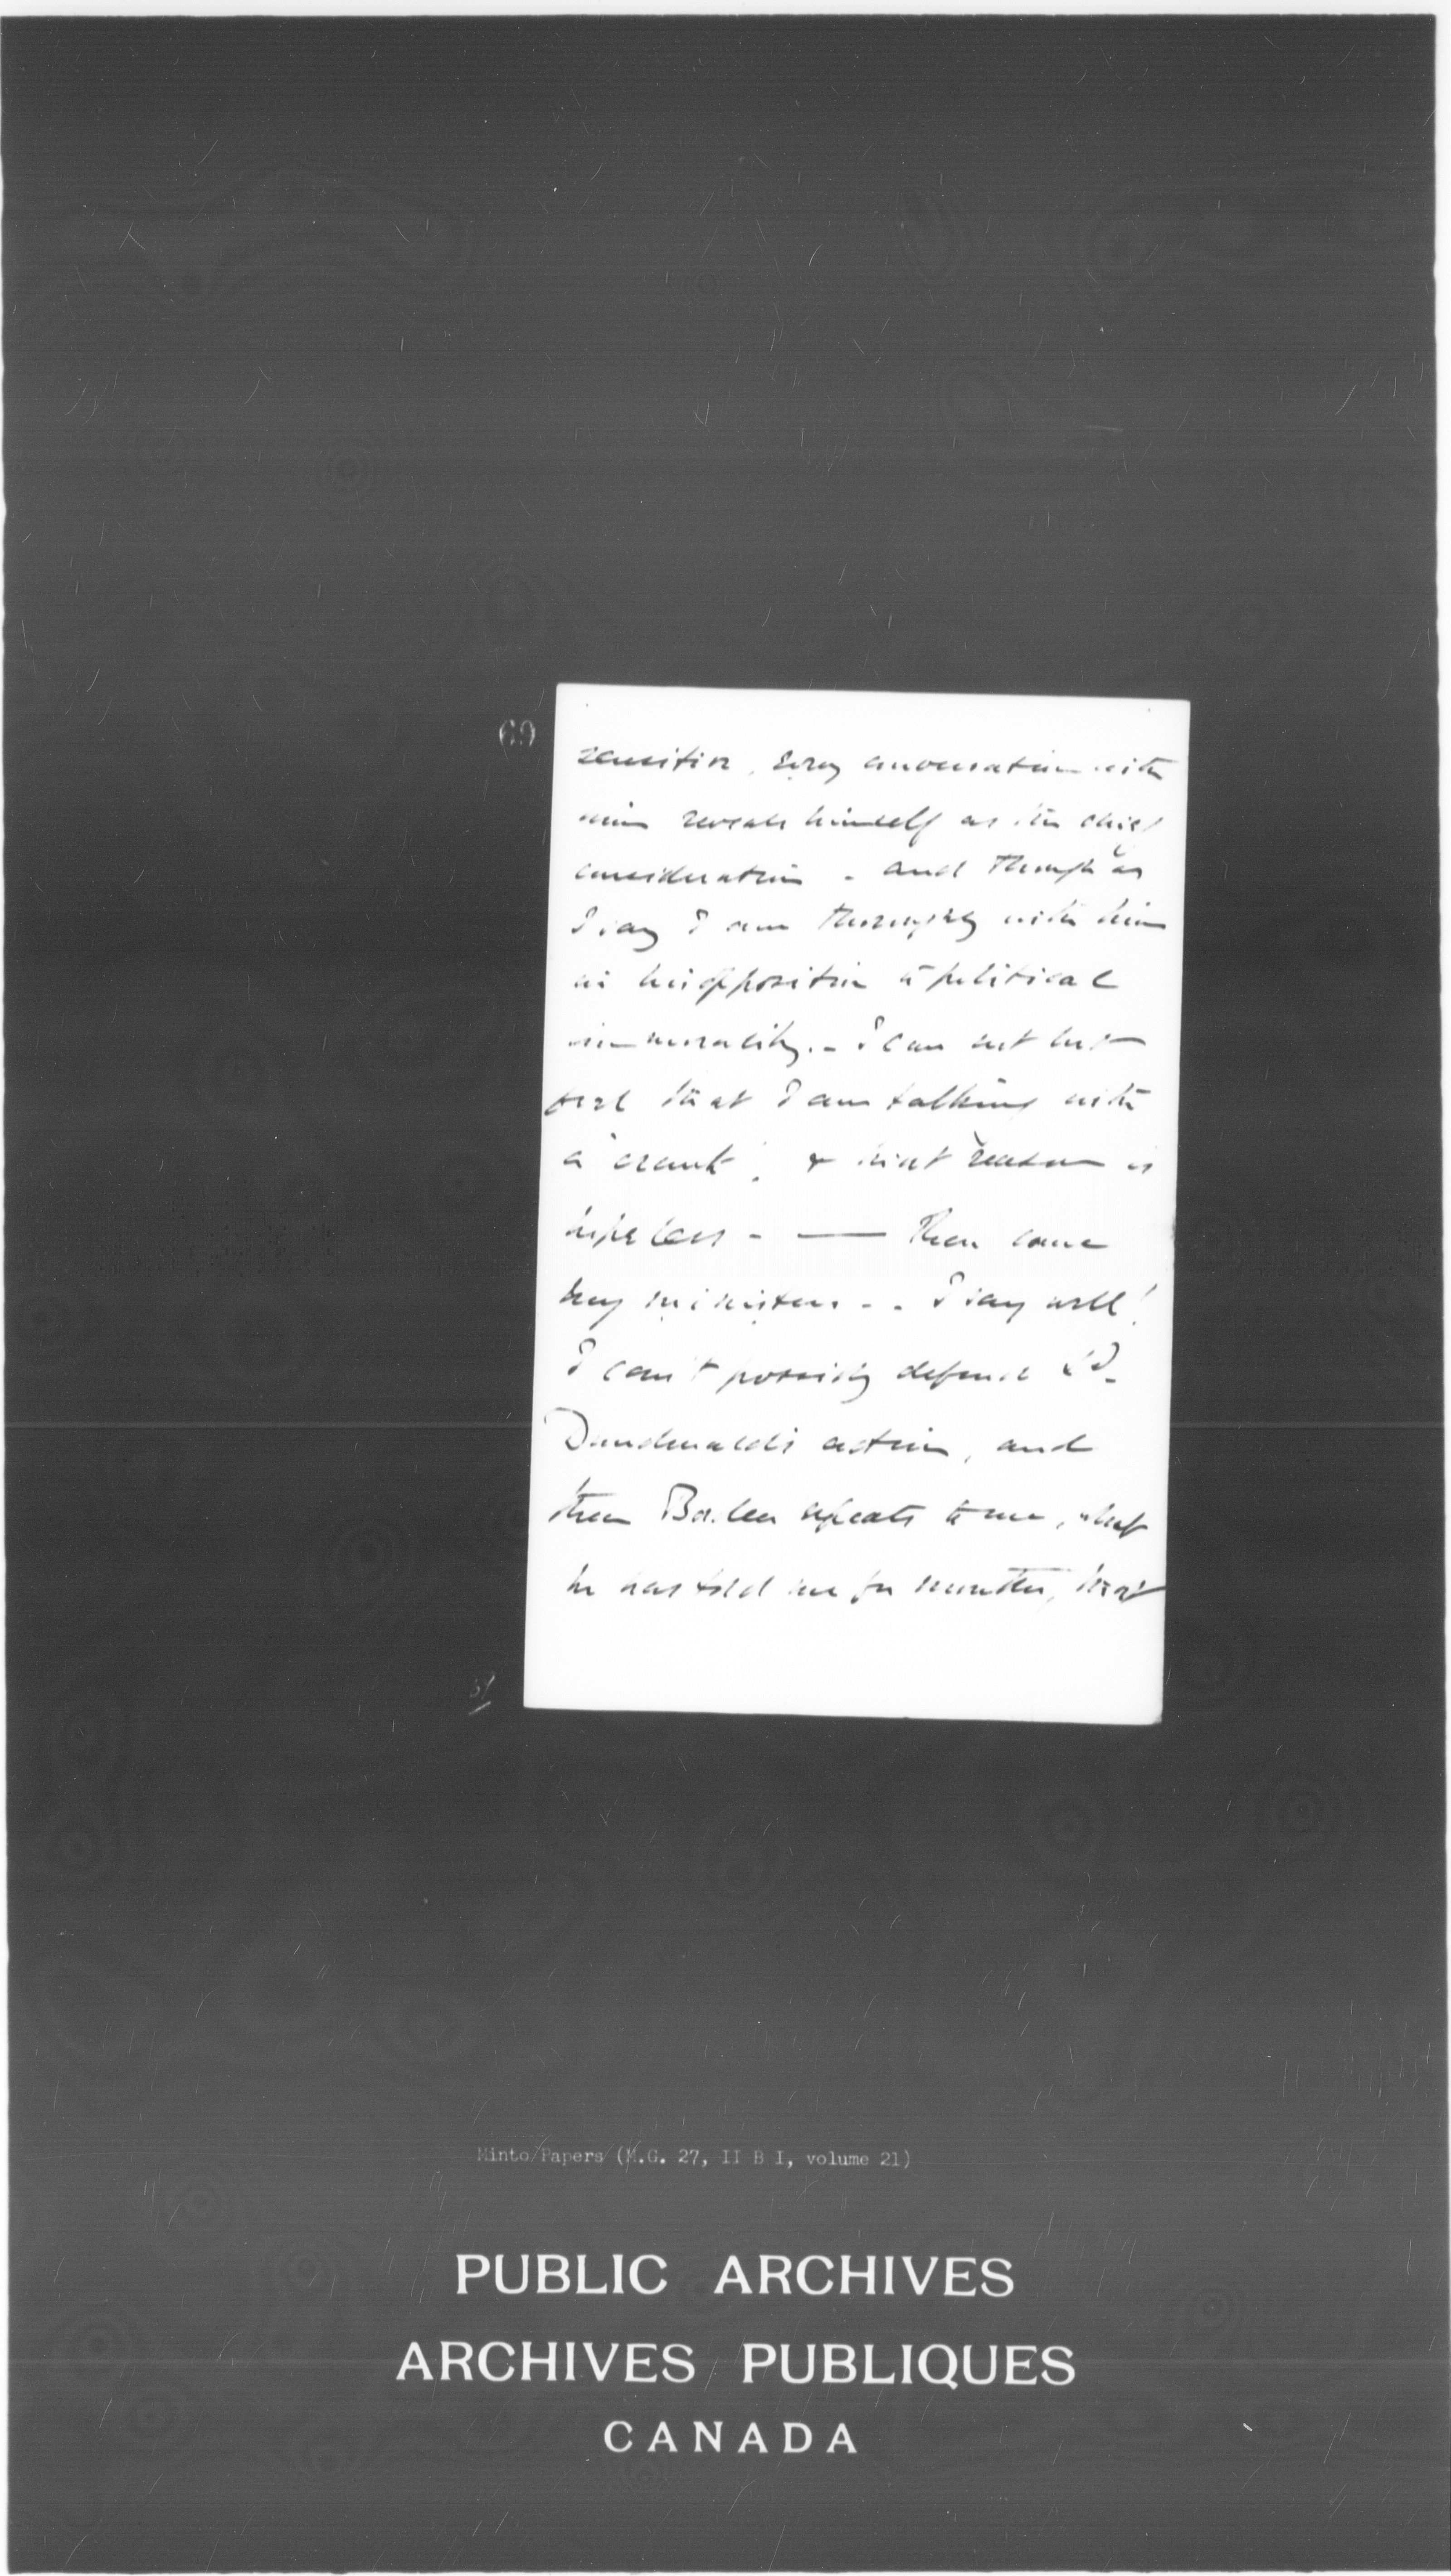 69
sensitive, every conversation with
him reveals himself as the chief
consideration - and though as
I say I am thoroughly with him
in his opposition to political
immorality. - I can not but
feel that I am talking with
a "crank", & that reason is
hopeless - — Then come
my ministers - - I say well!
I can't possibly defend Ld.
Dundonald's action, and
then Borden repeats to me, what
he has told me for months, that
Minto Papers (M.G. 27, II B I, volume 21)
PUBLIC ARCHIVES
ARCHIVES PUBLIQUES
CANADA